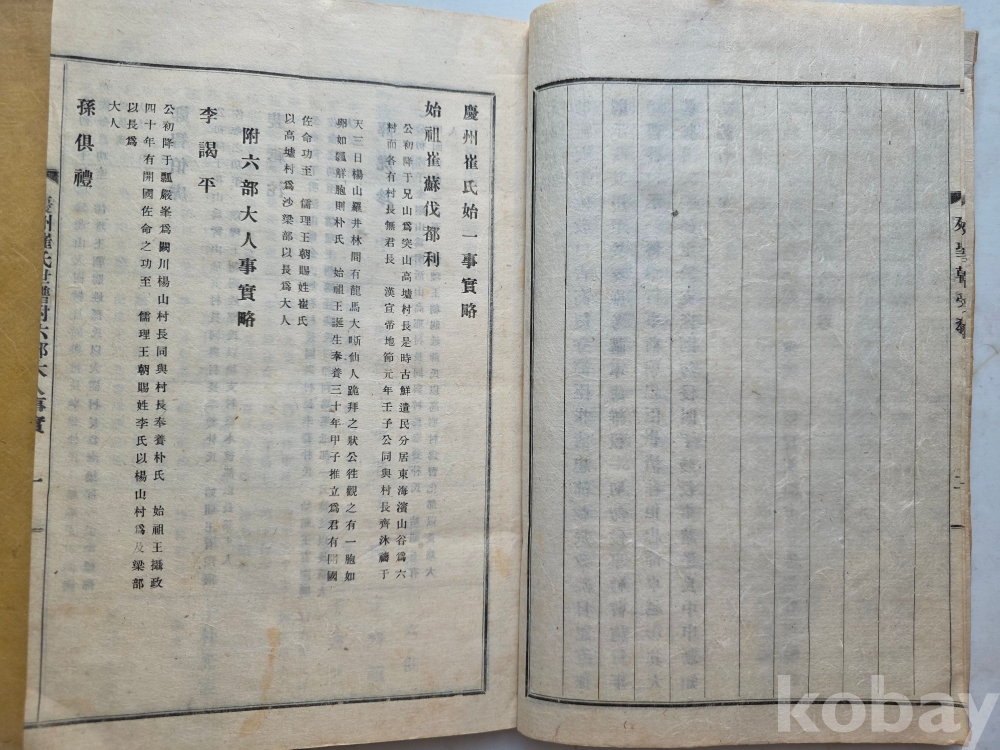 慶州崔氏始一事實略
始祖崔蘇伐都利
公初降于兄山爲突山高墟村長是時古鮮遺民分居東海濱山谷爲六
村而各有村長無君長 漢宣帝地節元年壬子公同與村長齊沐禱于
天三日楊山羅井林間有龍馬大嘶仙人跪拜之狀公徃觀之有一胞如
卵如瓢解胞則朴氏 始祖王誕生奉養三十年甲子推立爲君有開國
佐命功至 儒理王朝賜姓崔氏
以高墟村爲沙梁部以長爲大人
附六部大人事實略
李謁平
公初降于瓢嚴峯爲閼川楊山村長同與村長奉養朴氏 始祖王攝政
四十年有開國佐命之功至 儒理王朝賜姓李氏以楊山村爲及梁部
以長爲
大人
孫俱禮
慶州崔氏世譜附六部大人事實 一
二
kobay